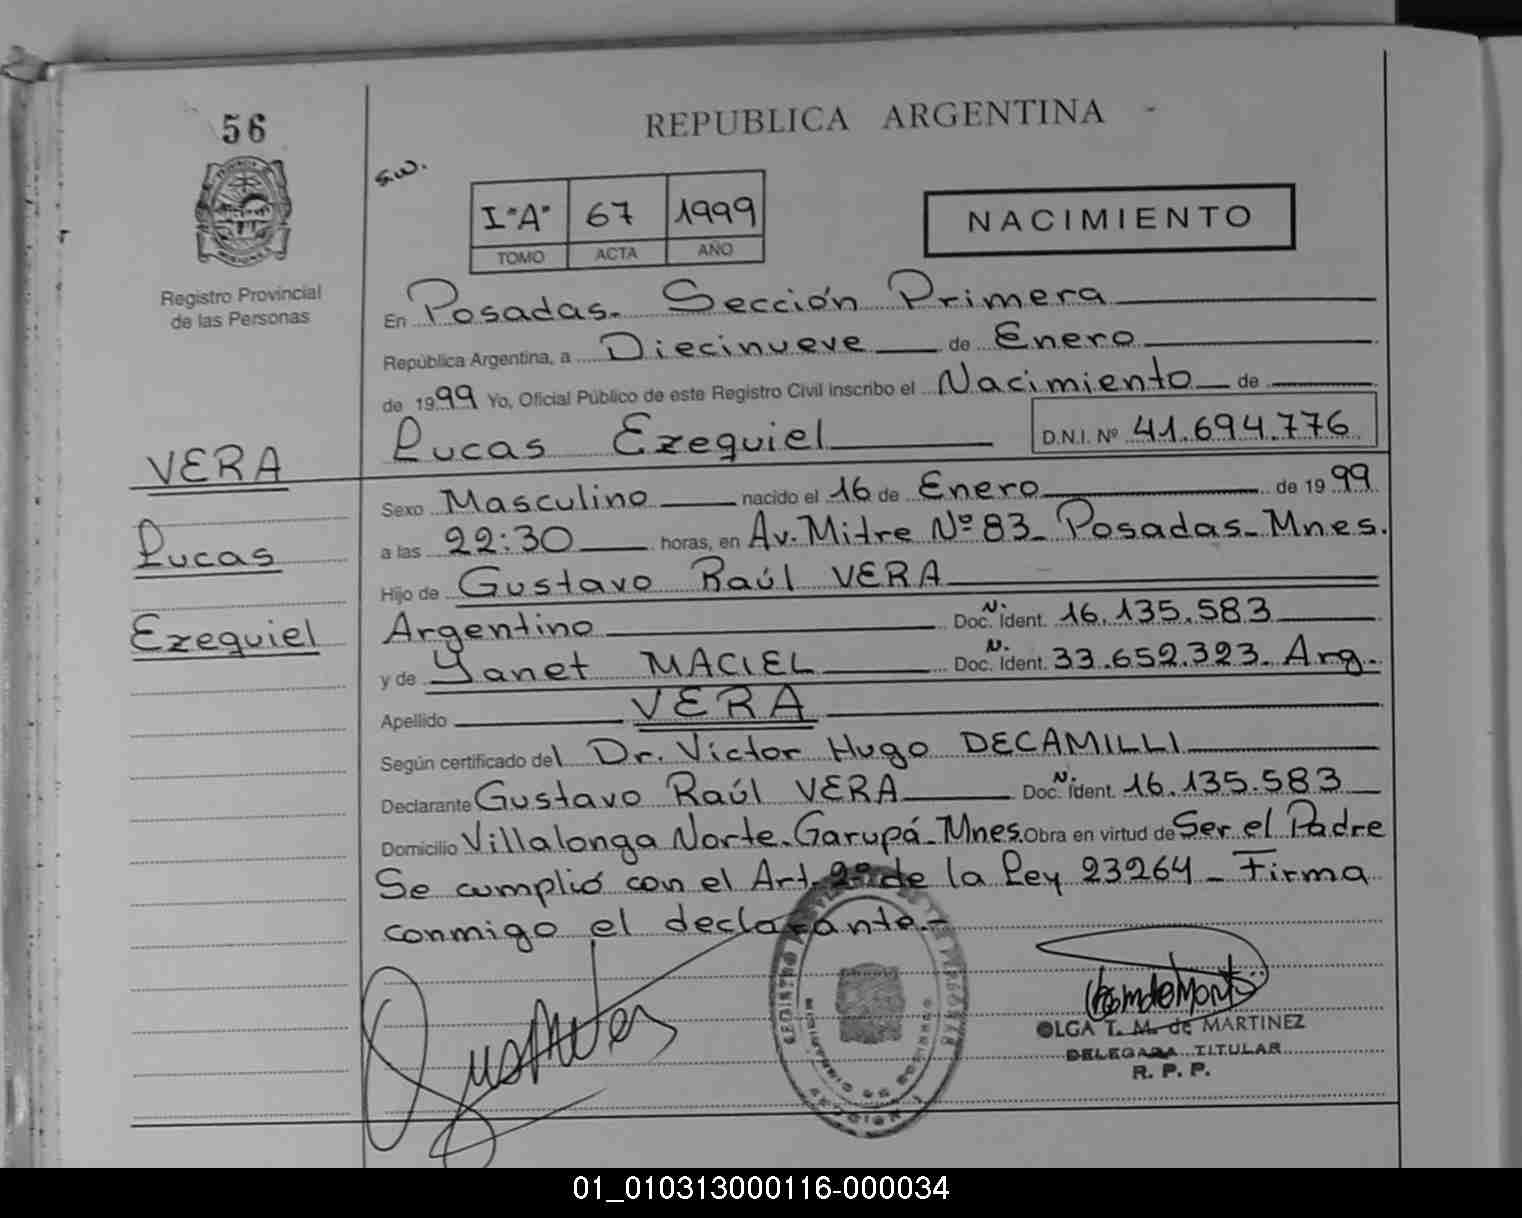 56
REPUBLICA ARGENTINA
s.w.
I"A" 67 1999
TOMO ACTA AÑO
NACIMIENTO
Registro Provincial
de las Personas
En Posadas. Sección Primera
República Argentina, a Diecinueve de Enero
de 1999 Yo, Oficial Público de este Registro Civil inscribo el Nacimiento de
Lucas Ezequiel D.N.I. Nº 41.694.776
VERA
Lucas
Ezequiel
Sexo Masculino nacido el 16 de Enero de 1999
a las 22:30 horas, en Av. Mitre Nº 83_ Posadas_ Mnes.
Hijo de Gustavo Raúl VERA
Argentino Doc. N. Ident. 16.135.583
y de Yanet MACIEL Doc. N. Ident. 33.652.323_ Arg.
Apellido VERA
Según certificado del Dr. Victor Hugo DECAMILLI
Declarante Gustavo Raúl VERA Doc. N. Ident. 16.135.583
Domicilio Villalonga Norte. Garupá_ Mnes. Obra en virtud de Ser el Padre
Se cumplió con el Art. 2º de la Ley 23264_ Firma
conmigo el declarante.-
OLGA T. M. de MARTINEZ
DELEGADA TITULAR
R. P. P.
01_010313000116-000034